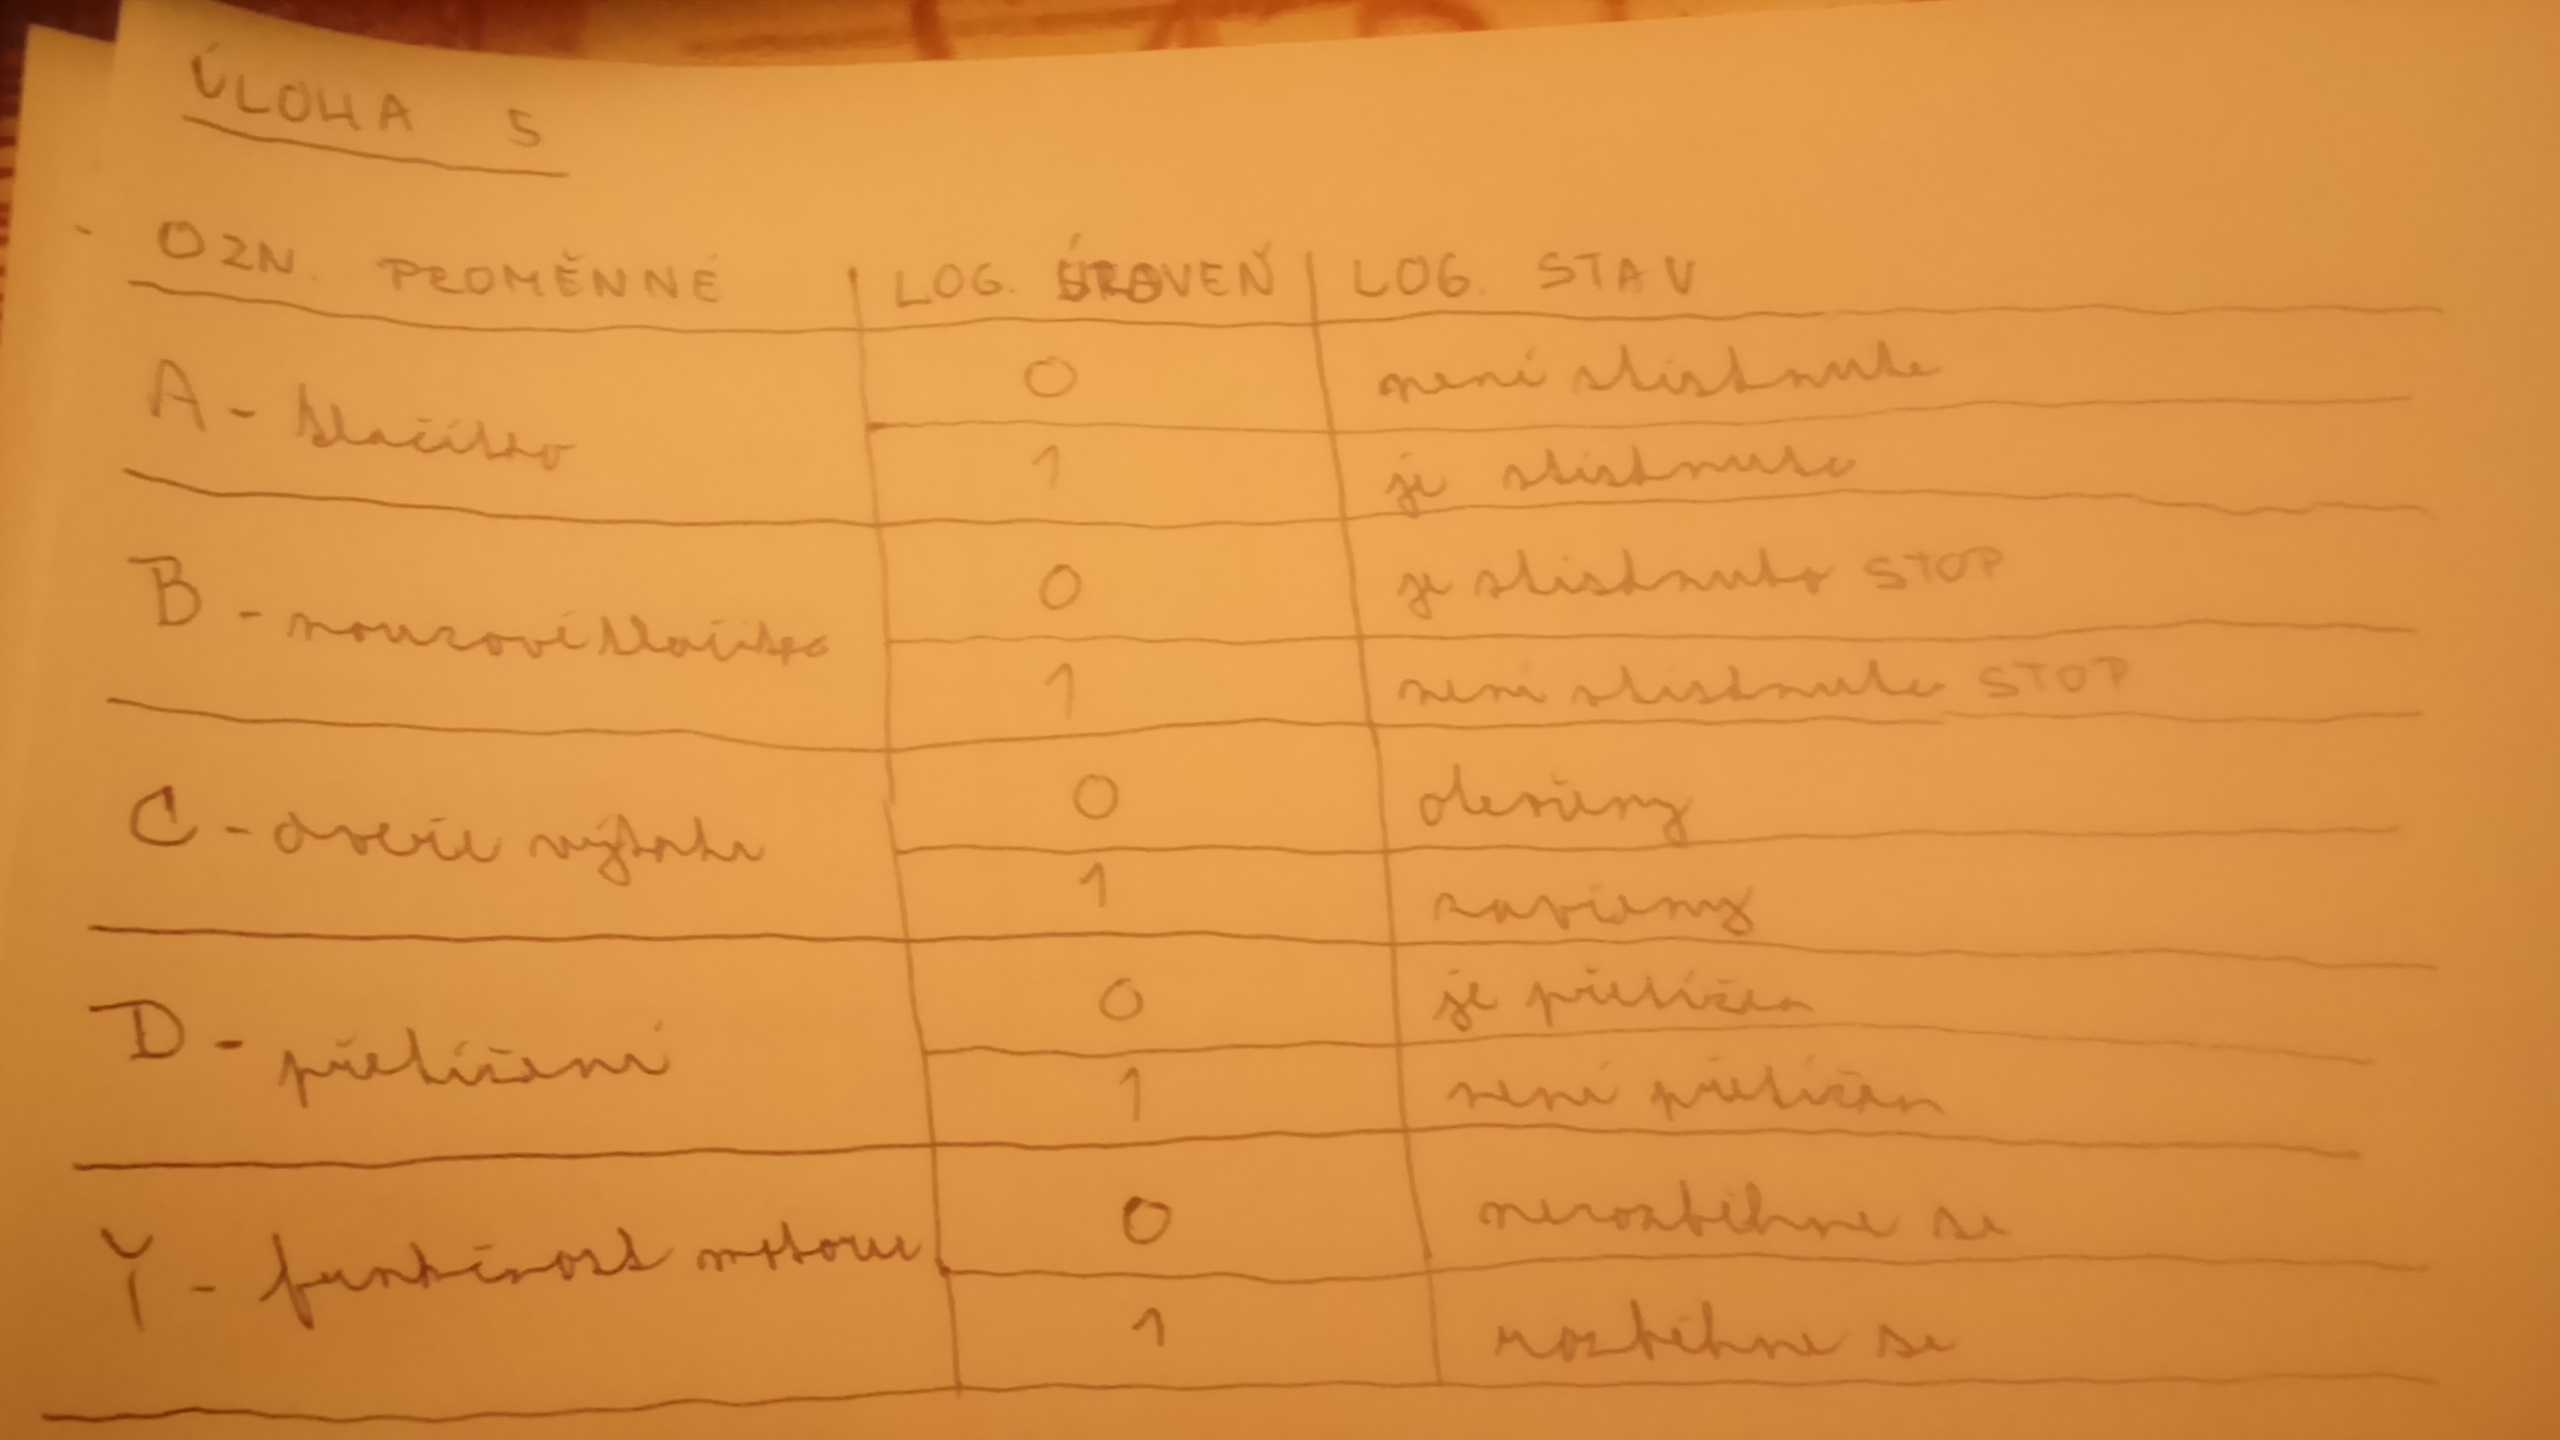 ÚLOHA 5
OZN. PROMĚNNÉ LOG. ÚROVEŇ LOG. STAV
A - tlačítko
0 není stisknuto
1 je stisknuto
B - nouzové tlačítko
0 je stisknuto STOP
1 není stisknuto STOP
C - dveře výtahu
0 otevřeny
1 zavřeny
D - přetížení
0 je přetížen
1 není přetížen
Y - funkčnost motoru
0 nerozběhne se
1 rozběhne se